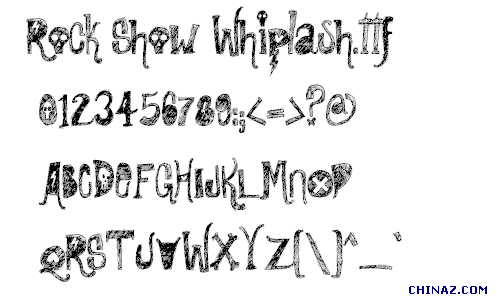 Rock Show Whiplash.ttf
0123456789:;<=>?@
ABCDEFGHIJKLMNOP
QRSTUVWXYZ[\]^_`
CHINAZ.COM